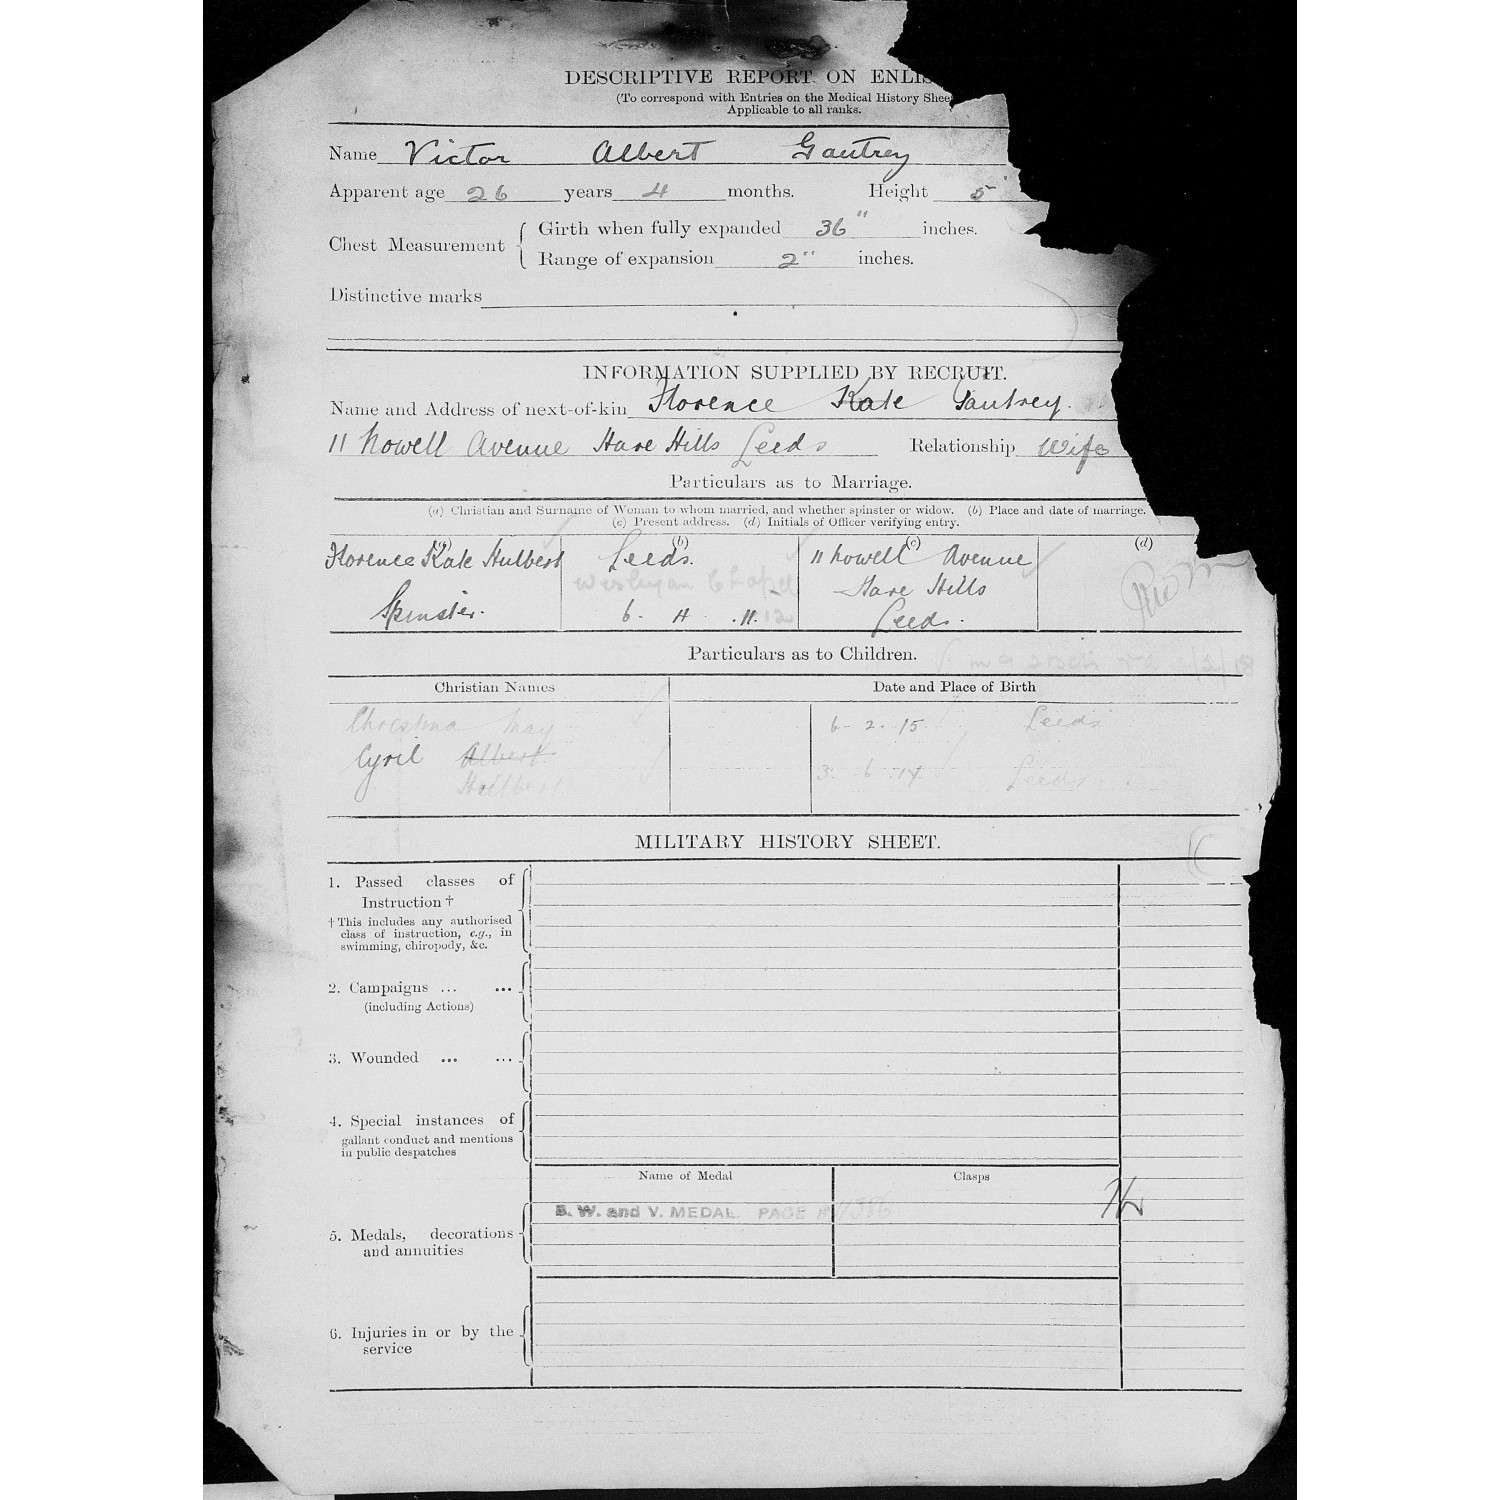 DESCRIPTIVE REPORT ON ENLIS
(To correspond with Entries on the Medical History Shee
Applicable to all ranks.
Name Victor Albert Gautrey
Apparent age 26 years 4 months. Height 5'
Chest Measurement { Girth when fully expanded 36" inches.
Range of expansion 2" inches.
Distinctive marks
INFORMATION SUPPLIED BY RECRUIT.
Name and Address of next-of-kin Florence Kate Gautrey.
11 Nowell Avenue Hare Hills Leeds Relationship Wife
Particulars as to Marriage.
(a) Christian and Surname of Woman to whom married, and whether spinster or widow. (b) Place and date of marriage.
(c) Present address. (d) Initials of Officer verifying entry.
(a) (b) (c) (d)
Florence Kate Hulbert Leeds. 11 Nowell Avenue
Wesleyan Chapel Hare Hills
Spinster. 6. 4 .11. 12 Leeds.
Particulars as to Children.
Christian Names Date and Place of Birth
Christina May 6-2-15 Leeds
Cyril Albert 3. 6 .14 Leeds
Hulbert
MILITARY HISTORY SHEET.
1. Passed classes of
Instruction †
† This includes any authorised
class of instruction, e.g., in
swimming, chiropody, &c.
2. Campaigns ... ...
(including Actions)
3. Wounded ... ...
4. Special instances of
gallant conduct and mentions
in public despatches
Name of Medal Clasps
B. W. and V. MEDAL. PAGE
5. Medals, decorations
and annuities
6. Injuries in or by the
service